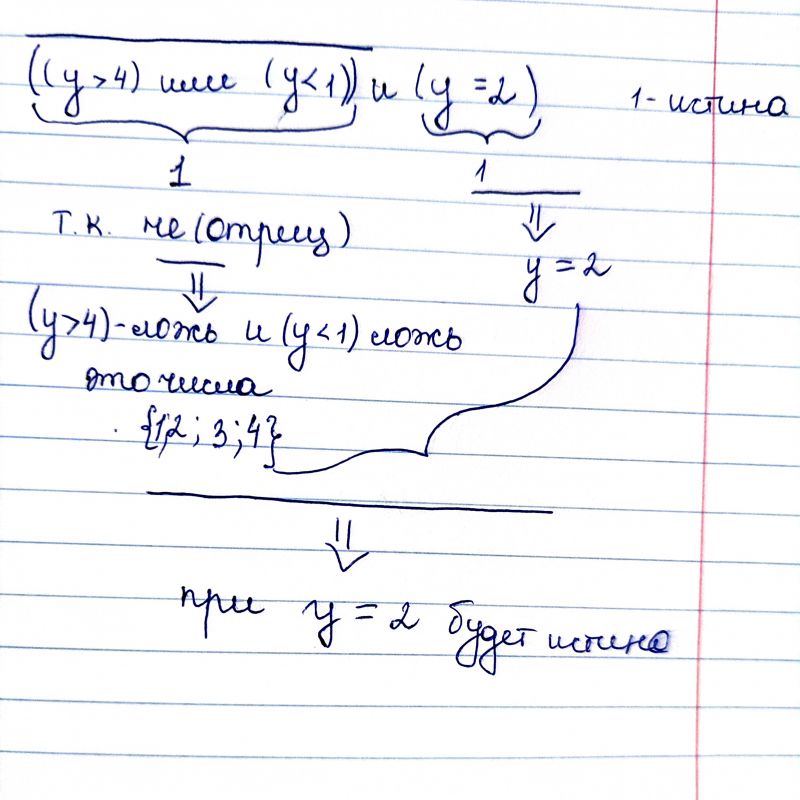 ((y>4) или (y<1)) и (y=2) 1- истина
1 1
т.к. не (отриц)
y=2
(y>4)-ложь и (y<1) ложь
это числа
{1,2; 3; 4}
при y=2 будет истина